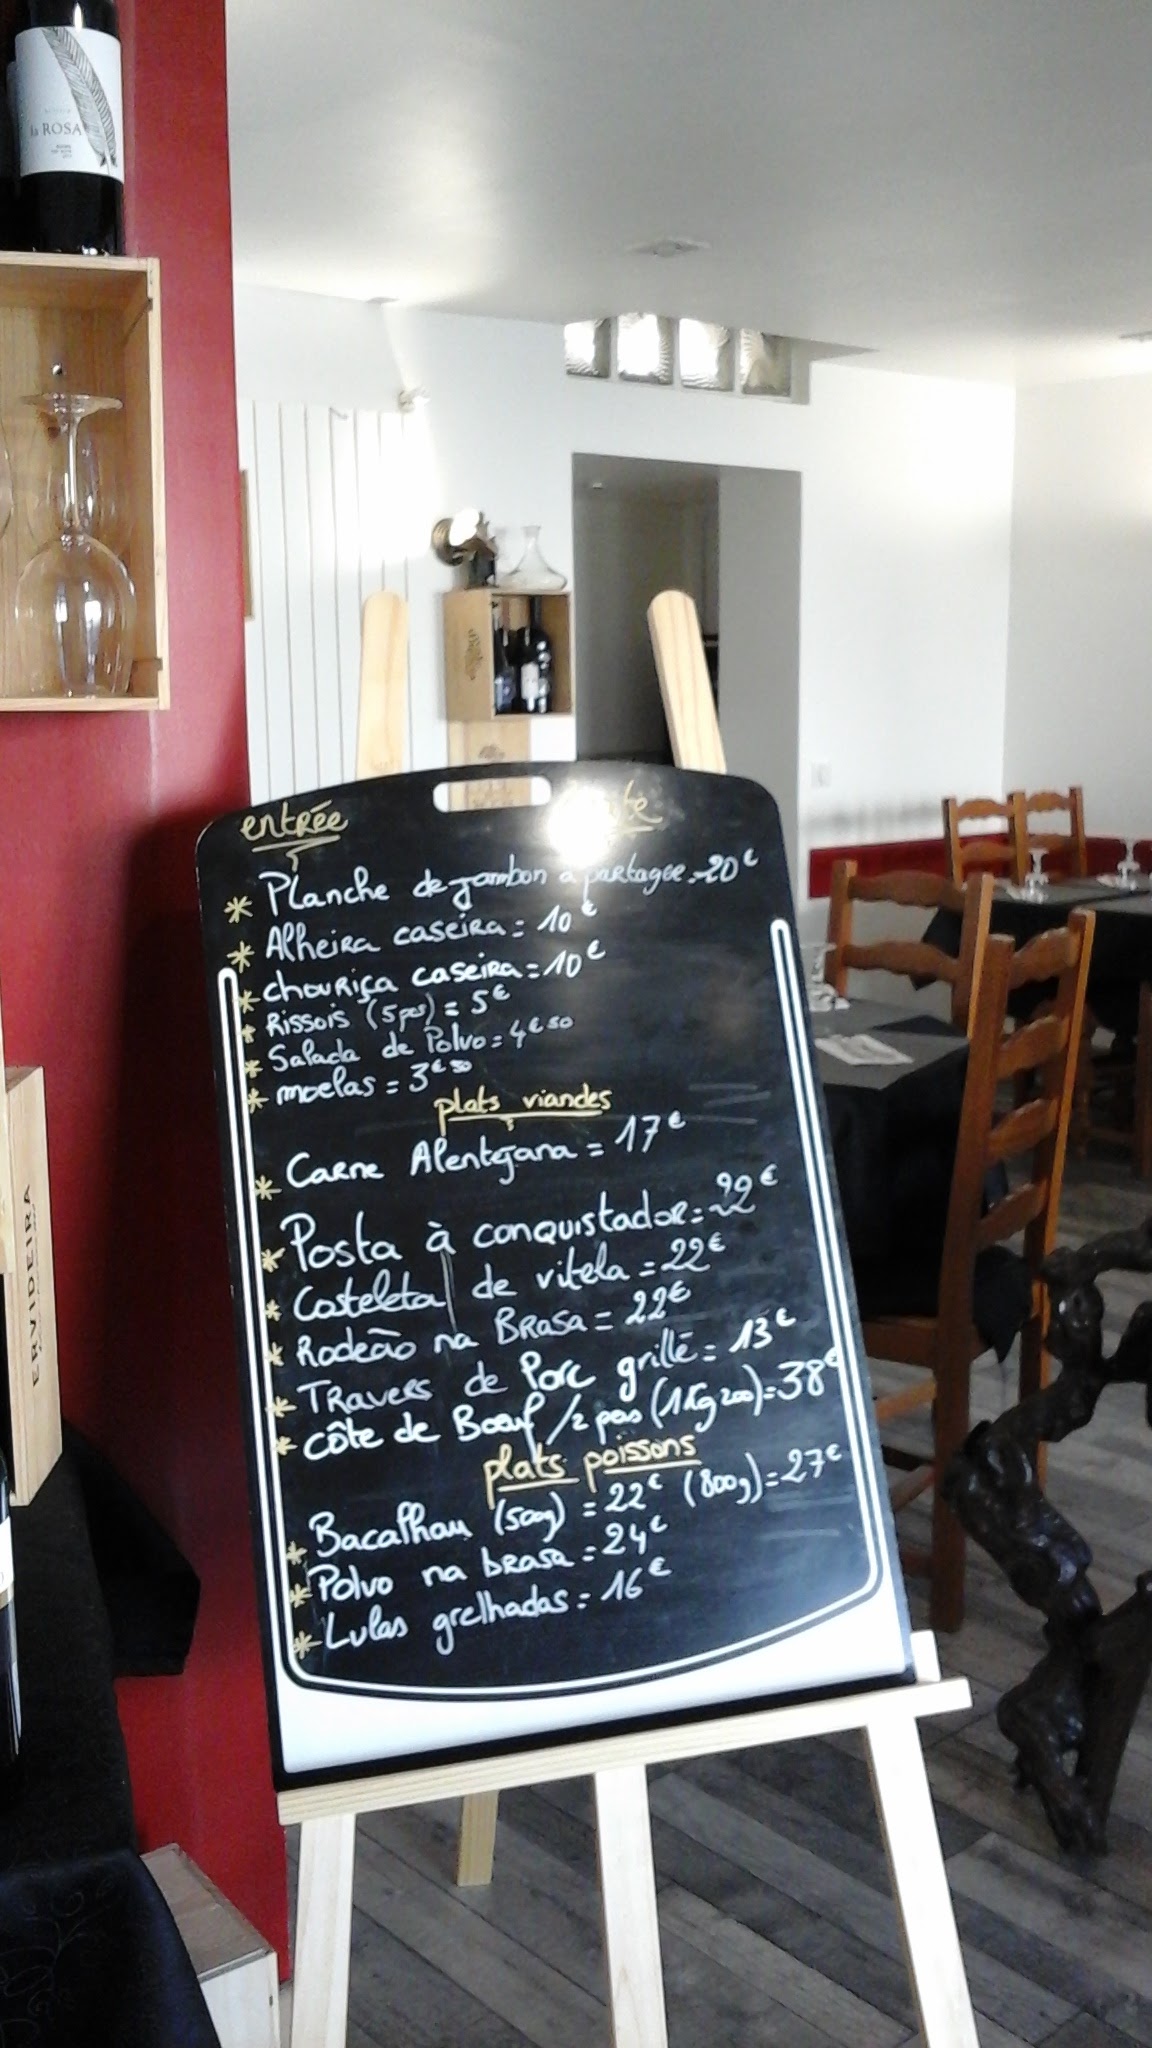 la ROSA
entrée
* Planche de jambon a partager = 20€
* Alheira caseira = 10€
* chouriça caseira = 10€
* Rissois (5 pcs) = 5€
* Salada de Polvo = 4€50
* moelas = 3€50
plats viandes
* Carne Alentejana = 17€
* Posta à conquistador = 22€
* Costeleta de vitela = 22€
* Rodeão na Brasa = 22€
* Travers de Porc grillé = 13€
* côte de Boeuf / 2 pers (1Kg200) = 38€
plats poissons
* Bacalhau (500g) = 22€ (800g) = 27€
* Polvo na brasa = 24€
* Lulas grelhadas = 16€
ERVIDEIRA